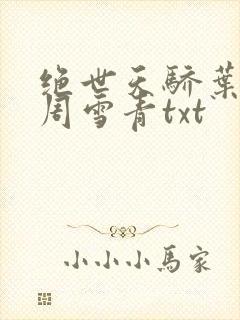 绝世天骄葉
周雪青txt
小小小馬家